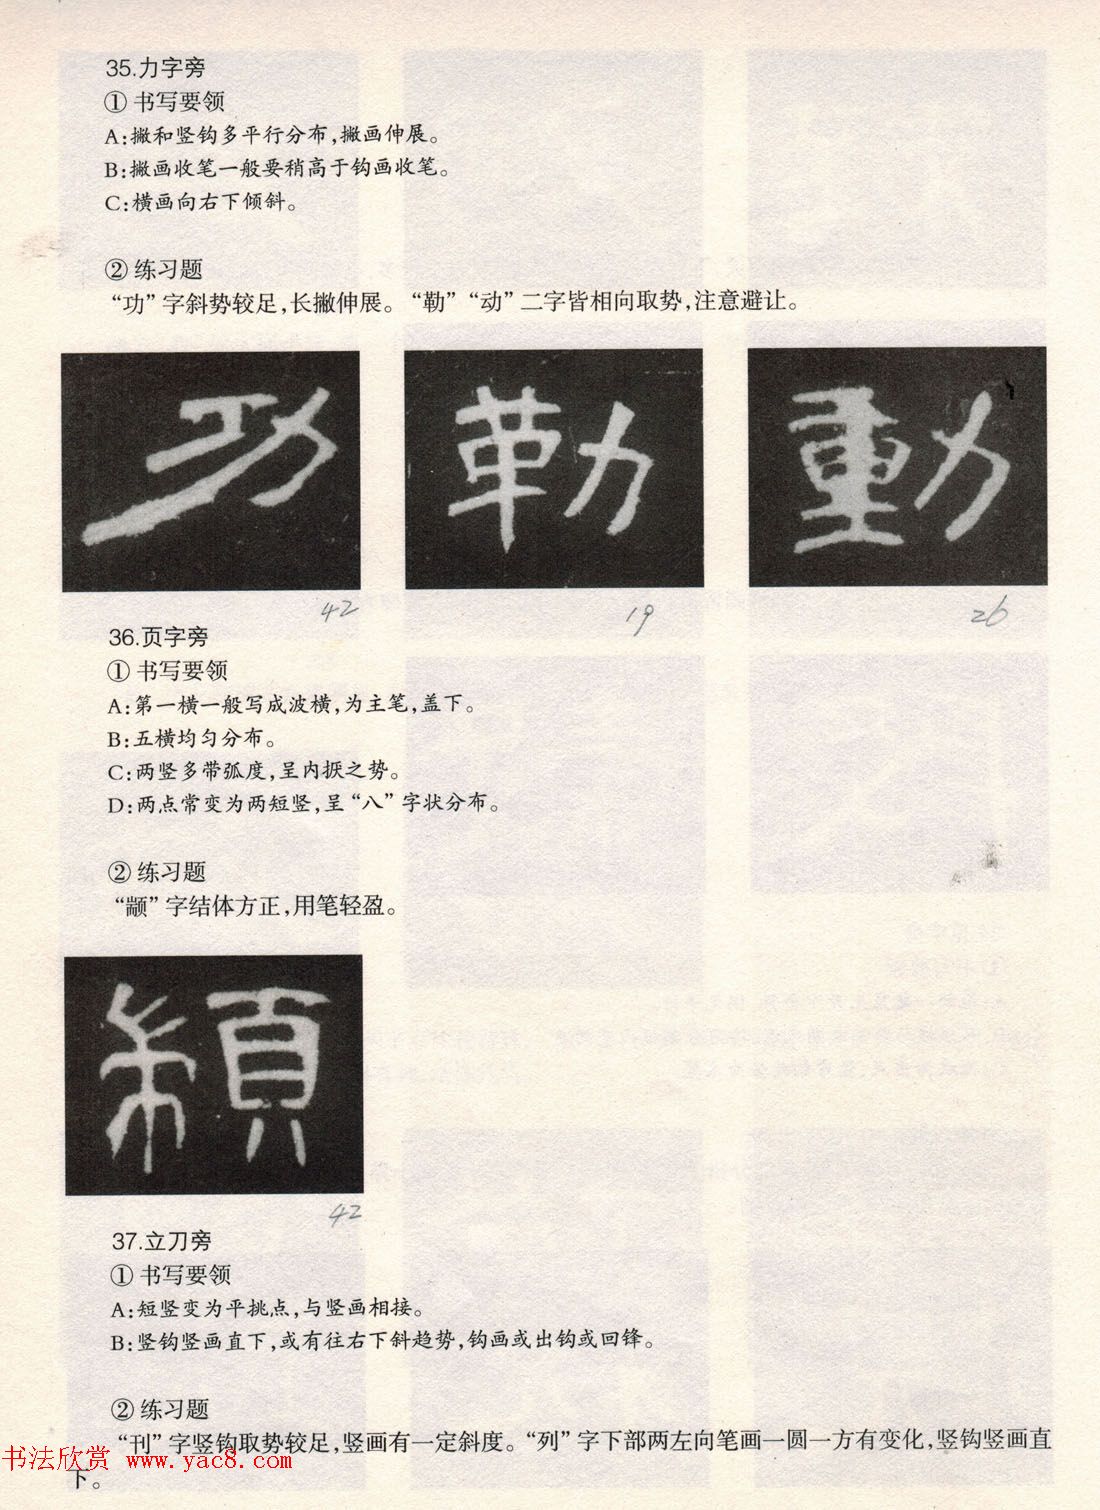 35.力字旁
① 书写要领
A:撇和竖钩多平行分布,撇画伸展。
B:撇画收笔一般要稍高于钩画收笔。
C:横画向右下倾斜。
② 练习题
“功”字斜势较足,长撇伸展。“勒”“动”二字皆相向取势,注意避让。
功 勒 動
42 19 26
36.页字旁
① 书写要领
A:第一横一般写成波横,为主笔,盖下。
B:五横均匀分布。
C:两竖多带弧度,呈内抠之势。
D:两点常变为两短竖,呈“八”字状分布。
② 练习题
“颛”字结体方正,用笔轻盈。
42
37.立刀旁
① 书写要领
A:短竖变为平挑点,与竖画相接。
B:竖钩竖画直下,或有往右下斜趋势,钩画或出钩或回锋。
② 练习题
“刊”字竖钩取势较足,竖画有一定斜度。“列”字下部两左向笔画一圆一方有变化,竖钩竖画直
下。
书法欣赏 www.yac8.com